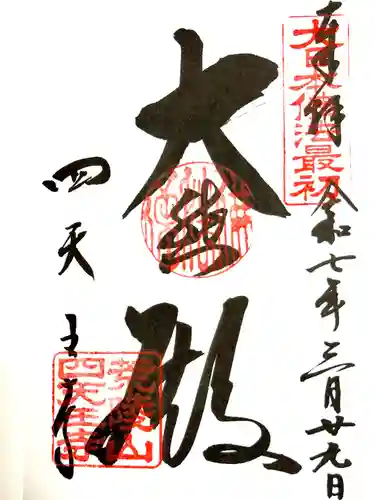 大日本佛法最初
奉拝 令和七年三月廿九日
大悲殿
四天王寺
荒陵山
四天王寺